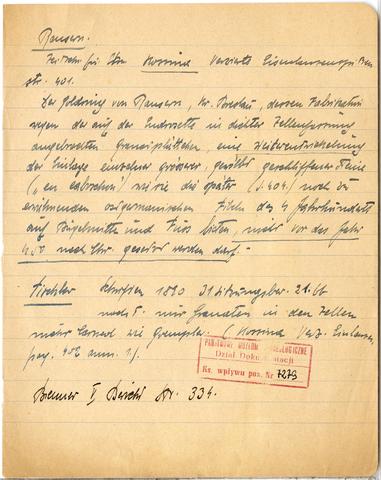 Ransern.
Kossina Verzierte Eisenlanzenspitzen
str. 401.
Der Goldring von Ransern, Kr. Breslau, dessen Fabrikation
wegen der auf der in Zellenfassung
angelöteten Granatplättchen, eine Weiterentwickelung
der Einlage einzelner grösserer, gewölbt geschliffener Steine
("en cabochon") wie sie die später (S. 404) noch zu
erwähnenden ostgermanischen Fibeln des 4 Jahrhunderts
auf und bieten, nicht vor das Jahr
400 nach Chr. gesetzt werden darf."
Tischler Schriften 1890 31 Sitzungsber. 21.
nur Granaten in den Zellen
mehr wie (Kossina Verz. Eisenlanzen
pag. 402 anm. 1).
PAŃSTWOWE MUZEUM ARCHEOLOGICZNE
Dział Dokumentacji
Ks. wpływu poz. Nr 7273
Bremer II Bericht str. 334.